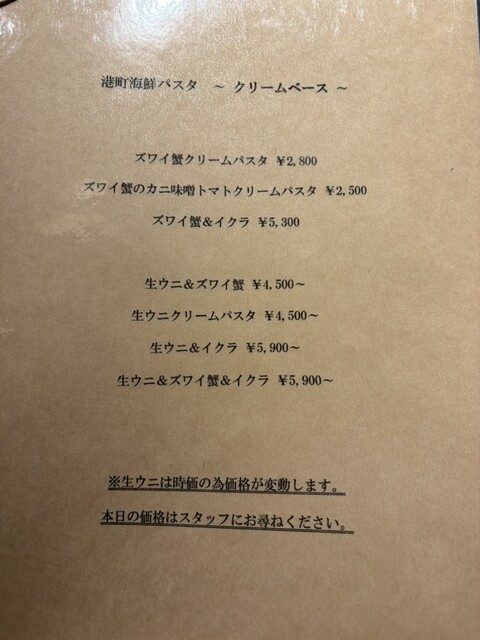 港町海鮮パスタ ～ クリームベース ～
ズワイ蟹クリームパスタ ¥2,800
ズワイ蟹のカニ味噌トマトクリームパスタ ¥2,500
ズワイ蟹&イクラ ¥5,300
生ウニ&ズワイ蟹 ¥4,500～
生ウニクリームパスタ ¥4,500～
生ウニ&イクラ ¥5,900～
生ウニ&ズワイ蟹&イクラ ¥5,900～
※生ウニは時価の為価格が変動します。
本日の価格はスタッフにお尋ねください。